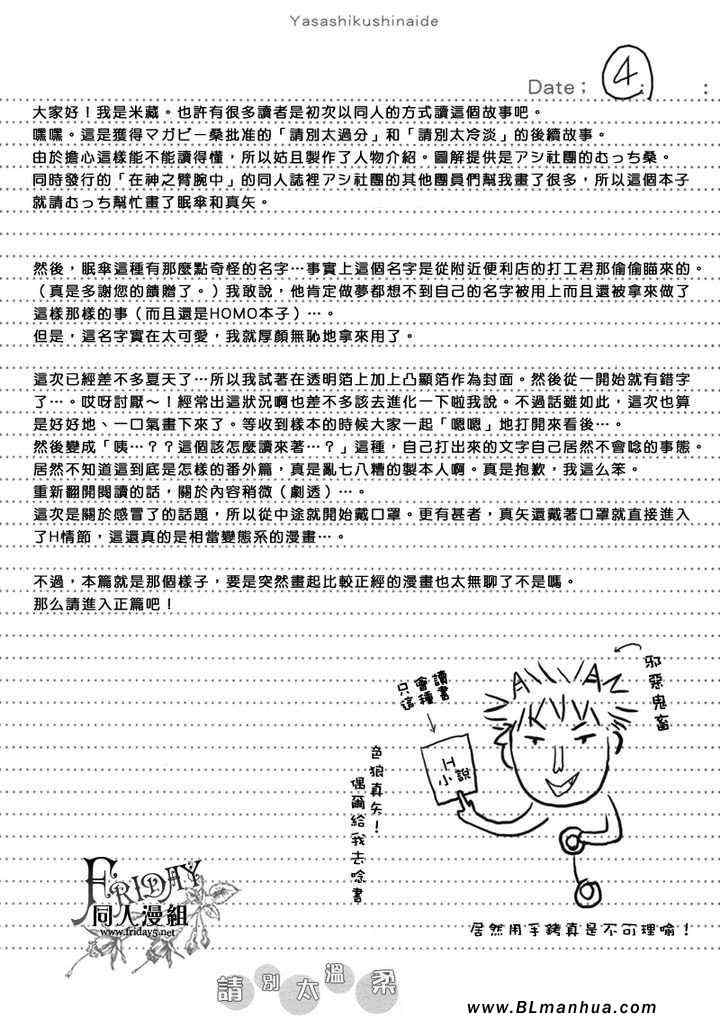 Yasashikushinaide
Date： 4
大家好！我是米藏。也許有很多讀者是初次以同人的方式讀這個故事吧。
嘿嘿。這是獲得マガビー桑批准的「請別太過分」和「請別太冷淡」的後續故事。
由於擔心這樣能不能讀得懂，所以姑且製作了人物介紹。圖解提供是アシ社團的むっち桑。
同時發行的「在神之臂腕中」的同人誌裡アシ社團的其他團員們幫我畫了很多，所以這個本子
就請むっち幫忙畫了眠傘和真矢。
然後，眠傘這種有那麼點奇怪的名字…事實上這個名字是從附近便利店的打工君那偷偷瞄來的。
（真是多謝您的饋贈了。）我敢說，他肯定做夢都想不到自己的名字被用上而且還被拿來做了
這樣那樣的事（而且還是HOMO本子）…。
但是，這名字實在太可愛，我就厚顏無恥地拿來用了。
這次已經差不多夏天了…所以我試著在透明箔上加上凸顯箔作為封面。然後從一開始就有錯字
了…。哎呀討厭～！經常出這狀況啊也差不多該去進化一下啦我說。不過話雖如此，這次也算
是好好地、一口氣畫下來了。等收到樣本的時候大家一起「嗯嗯」地打開來看後…。
然後變成「咦…？？這個該怎麼讀來著…？」這種，自己打出來的文字自己居然不會唸的事態。
居然不知道這到底是怎樣的番外篇，真是亂七八糟的製本人啊。真是抱歉，我這么笨。
重新翻開閱讀的話，關於內容稍微（劇透）…。
這次是關於感冒了的話題，所以從中途就開始戴口罩。更有甚者，真矢還戴著口罩就直接進入
了H情節，這還真的是相當變態系的漫畫…。
不過，本篇就是那個樣子，要是突然畫起比較正經的漫畫也太無聊了不是嗎。
那么請進入正篇吧！
邪惡鬼畜
只會讀
這種書
H
小說
色狼真矢！
偶爾給我去唸書
居然用手銬真是不可理喻！
FRIDAY
同人漫組
www.friday5.net
請別太溫柔
www.BLmanhua.com